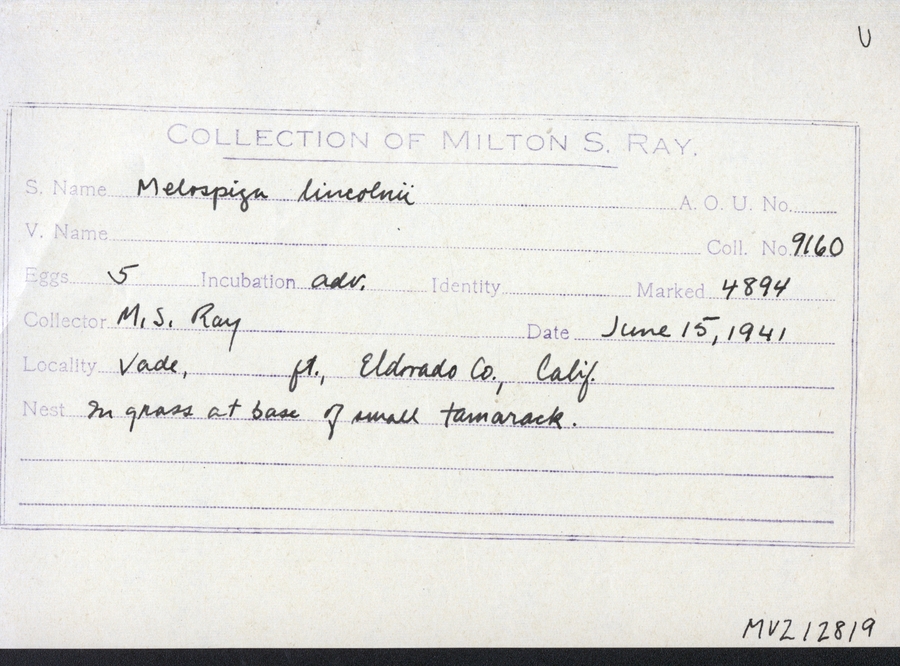 U
COLLECTION OF MILTON S. RAY.
S. Name Melospiza lincolnii A. O. U. No.
V. Name Coll. No. 9160
Eggs 5 Incubation adv. Identity Marked 4894
Collector M. S. Ray Date June 15, 1941
Locality Vade, ft., Eldorado Co., Calif.
Nest In grass at base of small tamarack.
MVZ 12819